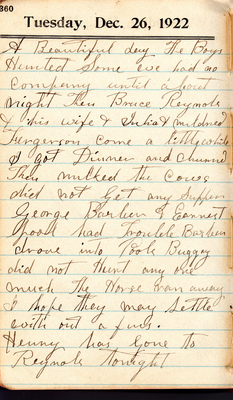 360
Tuesday, Dec. 26, 1922
A Beautiful day The Boys
Hunted Some we had no
Company until about
night then Bruce Reynols
& his wife & Julia & mildred
Furgerson Come a little while
I got Dinner and churned
Then milked the Cows
did not Get any Supper
George Barlien & Earnest
Pool had Trouble Barlien
drove into Pools Buggy
did not Hurt any one
much the Horse ran away
I hope they may Settle
with out a fuss.
Henry has Gone to
Reynols tonight